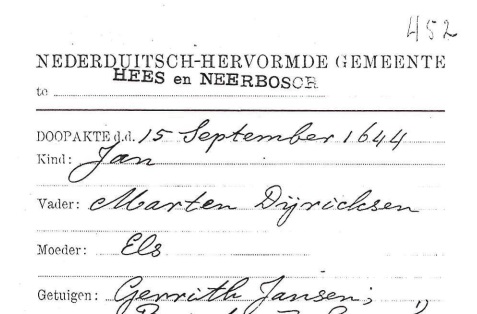 452
NEDERDUITSCH-HERVORMDE GEMEENTE
HEES en NEERBOSCH
te
DOOPAKTE d.d. 15 September 1644
Kind: Jan
Vader: Marten Dijricksen
Moeder: Els
Getuigen: Gerrith Jansen; "